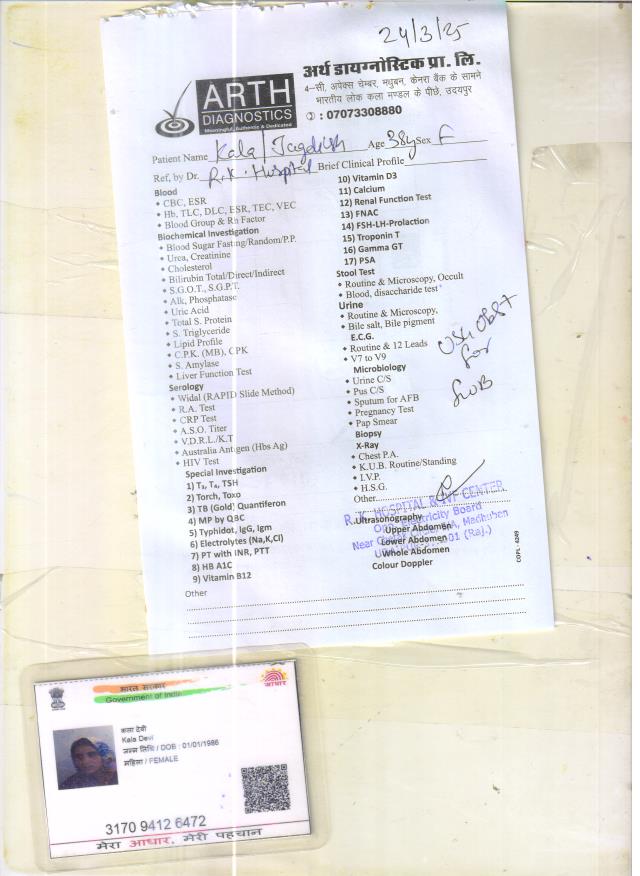 24/3/25
ARTH
DIAGNOSTICS
Meaningful, Authentic & Dedicated
अर्थ डायग्नोस्टिक प्रा. लि.
4–सी, अपेक्स चेम्बर, मधुबन, केनरा बैंक के सामने
भारतीय लोक कला मण्डल के पीछे, उदयपुर
: 07073308880
Patient Name Kala/Jagdish Age 38y Sex F
Ref, by Dr. R.K. Hospital Brief Clinical Profile
Blood
CBC, ESR
Hb, TLC, DLC, ESR, TEC, VEC
Blood Group & Rh Factor
Biochemical Investigation
Blood Sugar Fasting/Random/P.P.
Urea, Creatinine
Cholesterol
Bilirubin Total/Direct/Indirect
S.G.O.T., S.G.P.T.
Alk, Phosphatase
Uric Acid
Total S. Protein
S. Triglyceride
Lipid Profile
C.P.K. (MB), CPK
S. Amylase
Liver Function Test
Serology
Widal (RAPID Slide Method)
R.A. Test
CRP Test
A.S.O. Titer
V.D.R.L./K.T
Australia Antigen (Hbs Ag)
HIV Test
Special Investigation
1) T₃, T₄, TSH
2) Torch, Toxo
3) TB (Gold) Quantiferon
4) MP by QBC
5) Typhidot, IgG, Igm
6) Electrolytes (Na,K,Cl)
7) PT with INR, PTT
8) HB A1C
9) Vitamin B12
Other
10) Vitamin D3
11) Calcium
12) Renal Function Test
13) FNAC
14) FSH-LH-Prolaction
15) Troponin T
16) Gamma GT
17) PSA
Stool Test
Routine & Microscopy, Occult
Blood, disaccharide test
Urine
Routine & Microscopy,
Bile salt, Bile pigment
E.C.G.
Routine & 12 Leads
V7 to V9
Microbiology
Urine C/S
Pus C/S
Sputum for AFB
Pregnancy Test
Pap Smear
Biopsy
X-Ray
Chest P.A.
K.U.B. Routine/Standing
I.V.P.
H.S.G.
Other
Ultrasonography
Upper Abdomen
Lower Abdomen
Whole Abdomen
Colour Doppler
USG OBST
for
FWB
R. K. HOSPITAL & IVF CENTER
Electricity Board
Madhuban
(Raj.)
COPL - 6249
भारत सरकार
Government of India
आधार
कला देवी
Kala Devi
जन्म तिथि / DOB : 01/01/1986
महिला / FEMALE
3170 9412 6472
मेरा आधार, मेरी पहचान